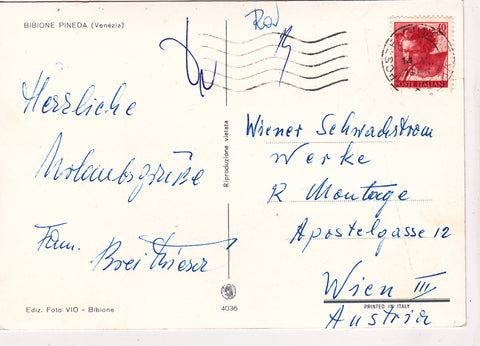 BIBIONE PINEDA (Venezia)
Herrliche
Urlaubsgrüße
Fam.
Riproduzione vietata
Ediz. Foto VIO - Bibione
4036
40
POSTE ITALIANE
Wiener Schwachstrom
Werke
R Montage
Apostelgasse 12
Wien III
PRINTED IN ITALY
Austria